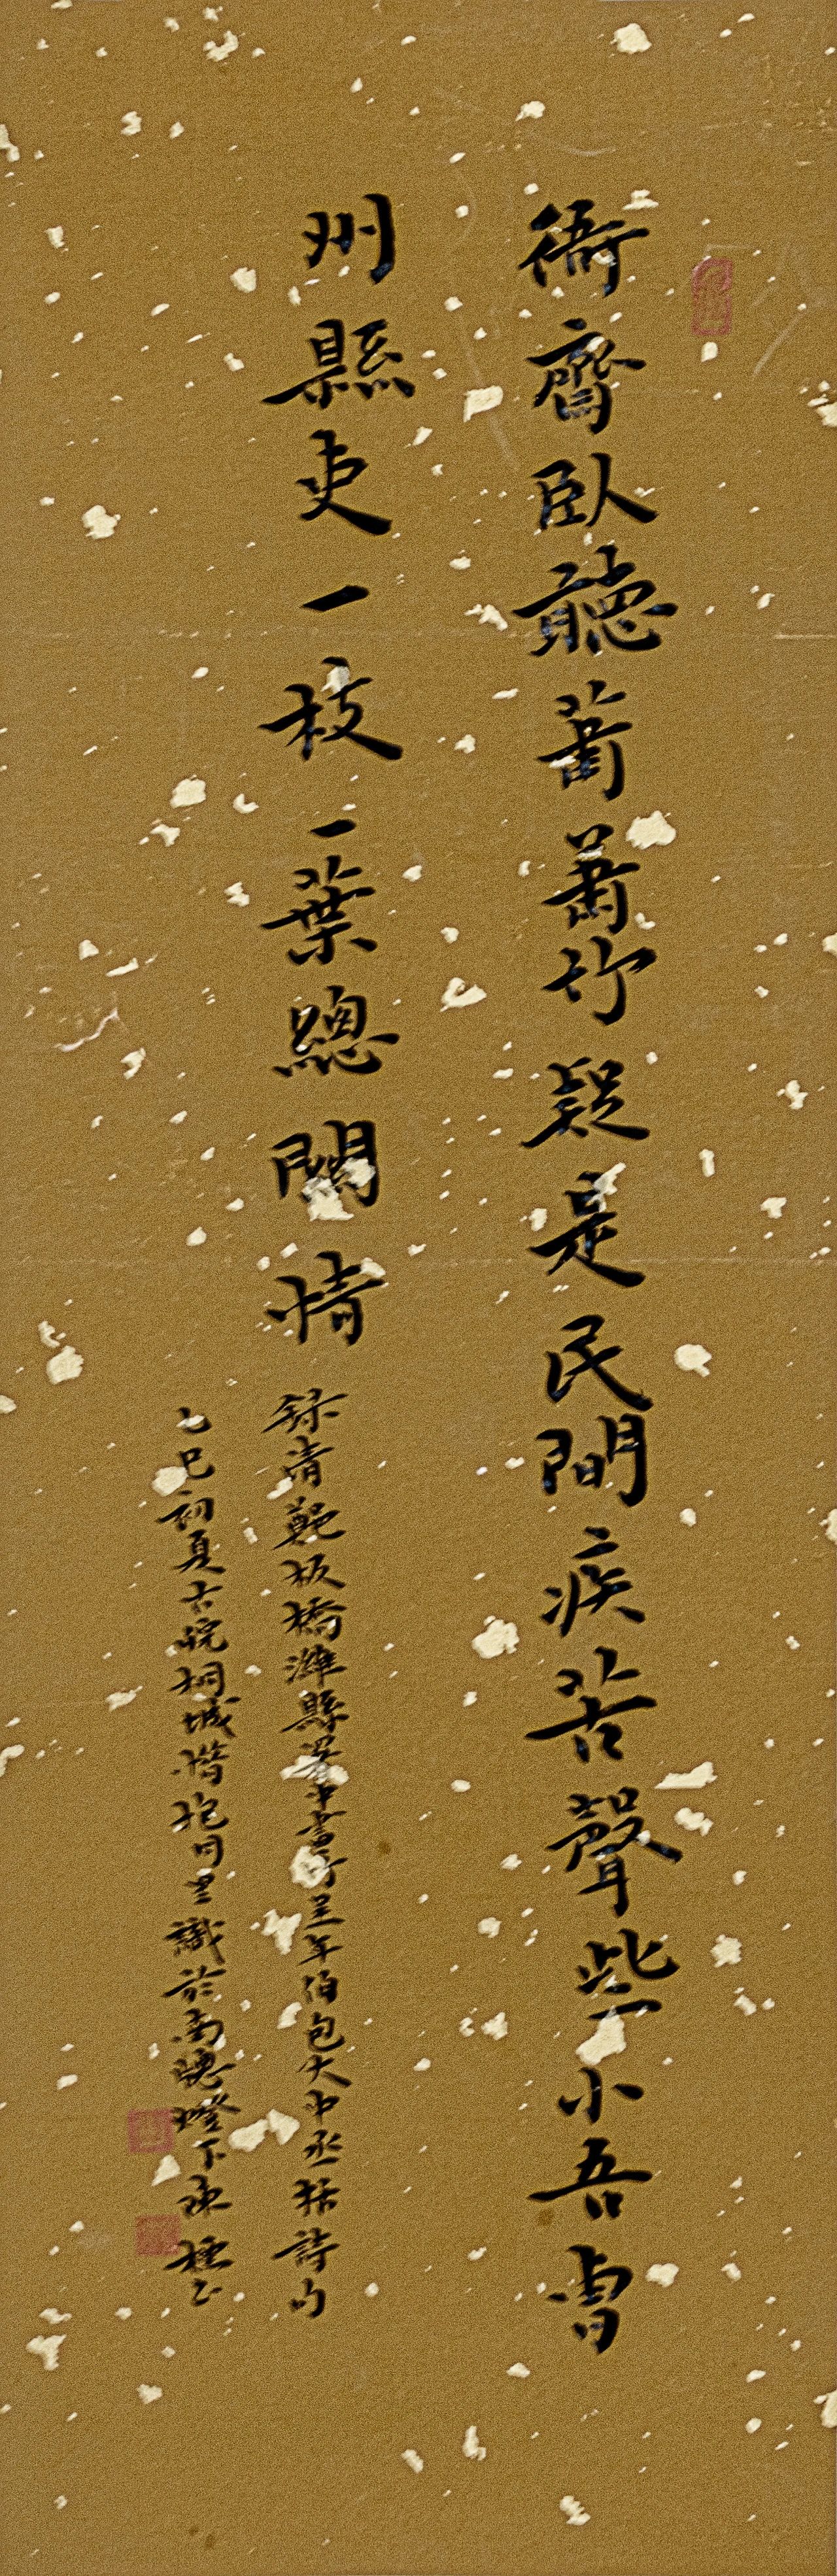 衙齋臥聽蕭蕭竹疑是民間疾苦聲些小吾曹
州縣吏一枝一葉總關情
錄清鄭板橋濰縣署中畫竹呈年伯包大中丞括詩句
乙巳初夏古皖桐城
識於南窗燈下陳